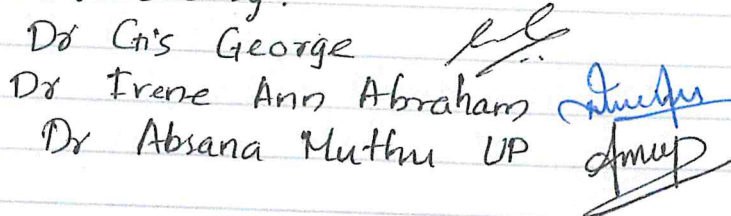 Dr Gis George
Dr Irene Ann Abraham
Dr Absana Muthu UP